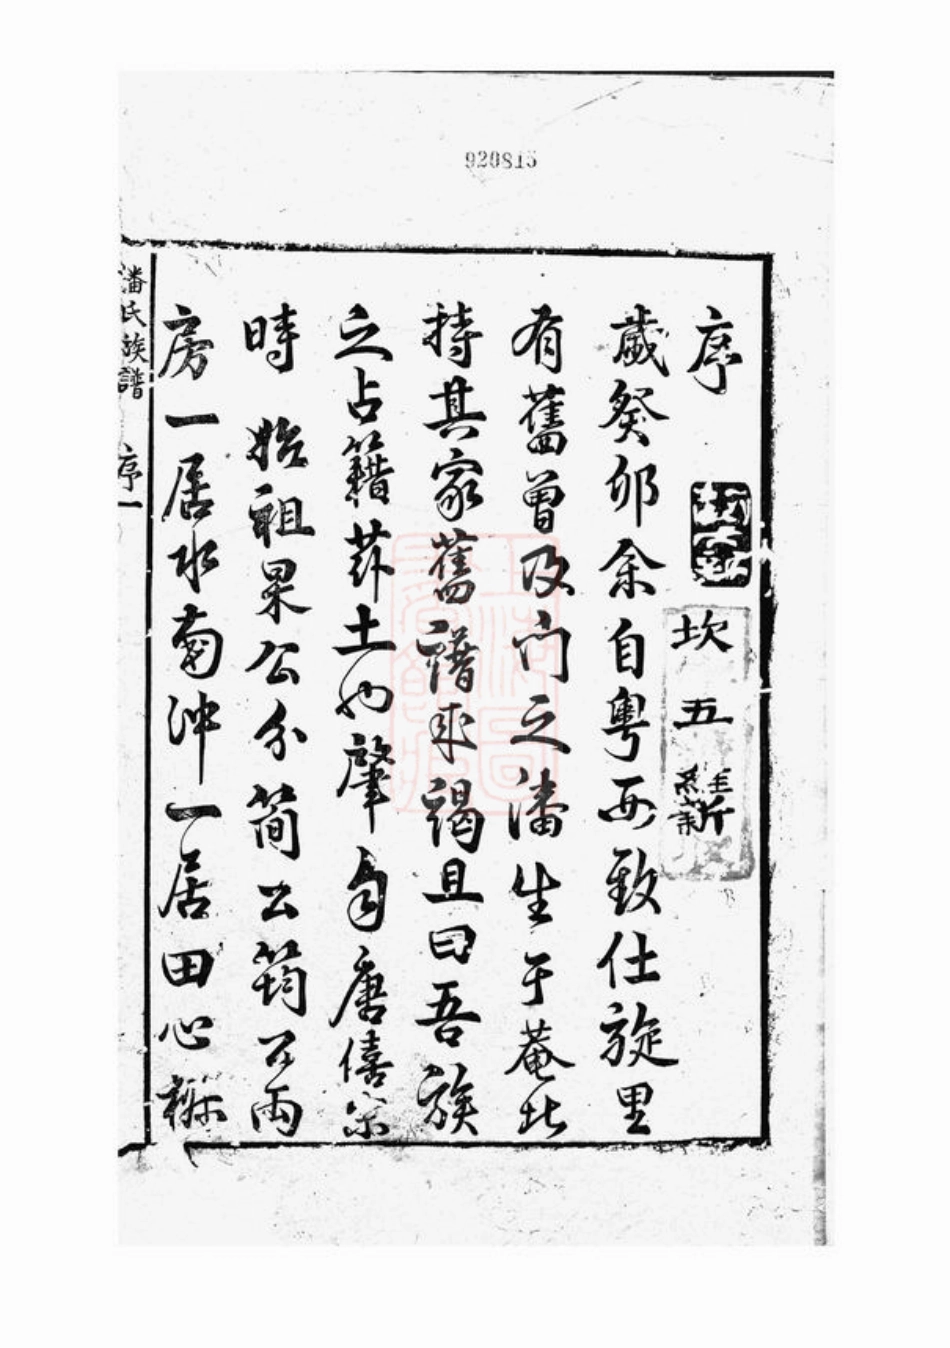 920815
序
坎五
歲癸卯余自粵西致仕旋里
有舊曾及門之潘生于菴比
持其家舊譜來謁且曰吾族
之占籍茲土也肇自唐僖宗
時 始祖果公分簡公筠公兩
房一居水南沖一居田心
潘氏族譜 序 一